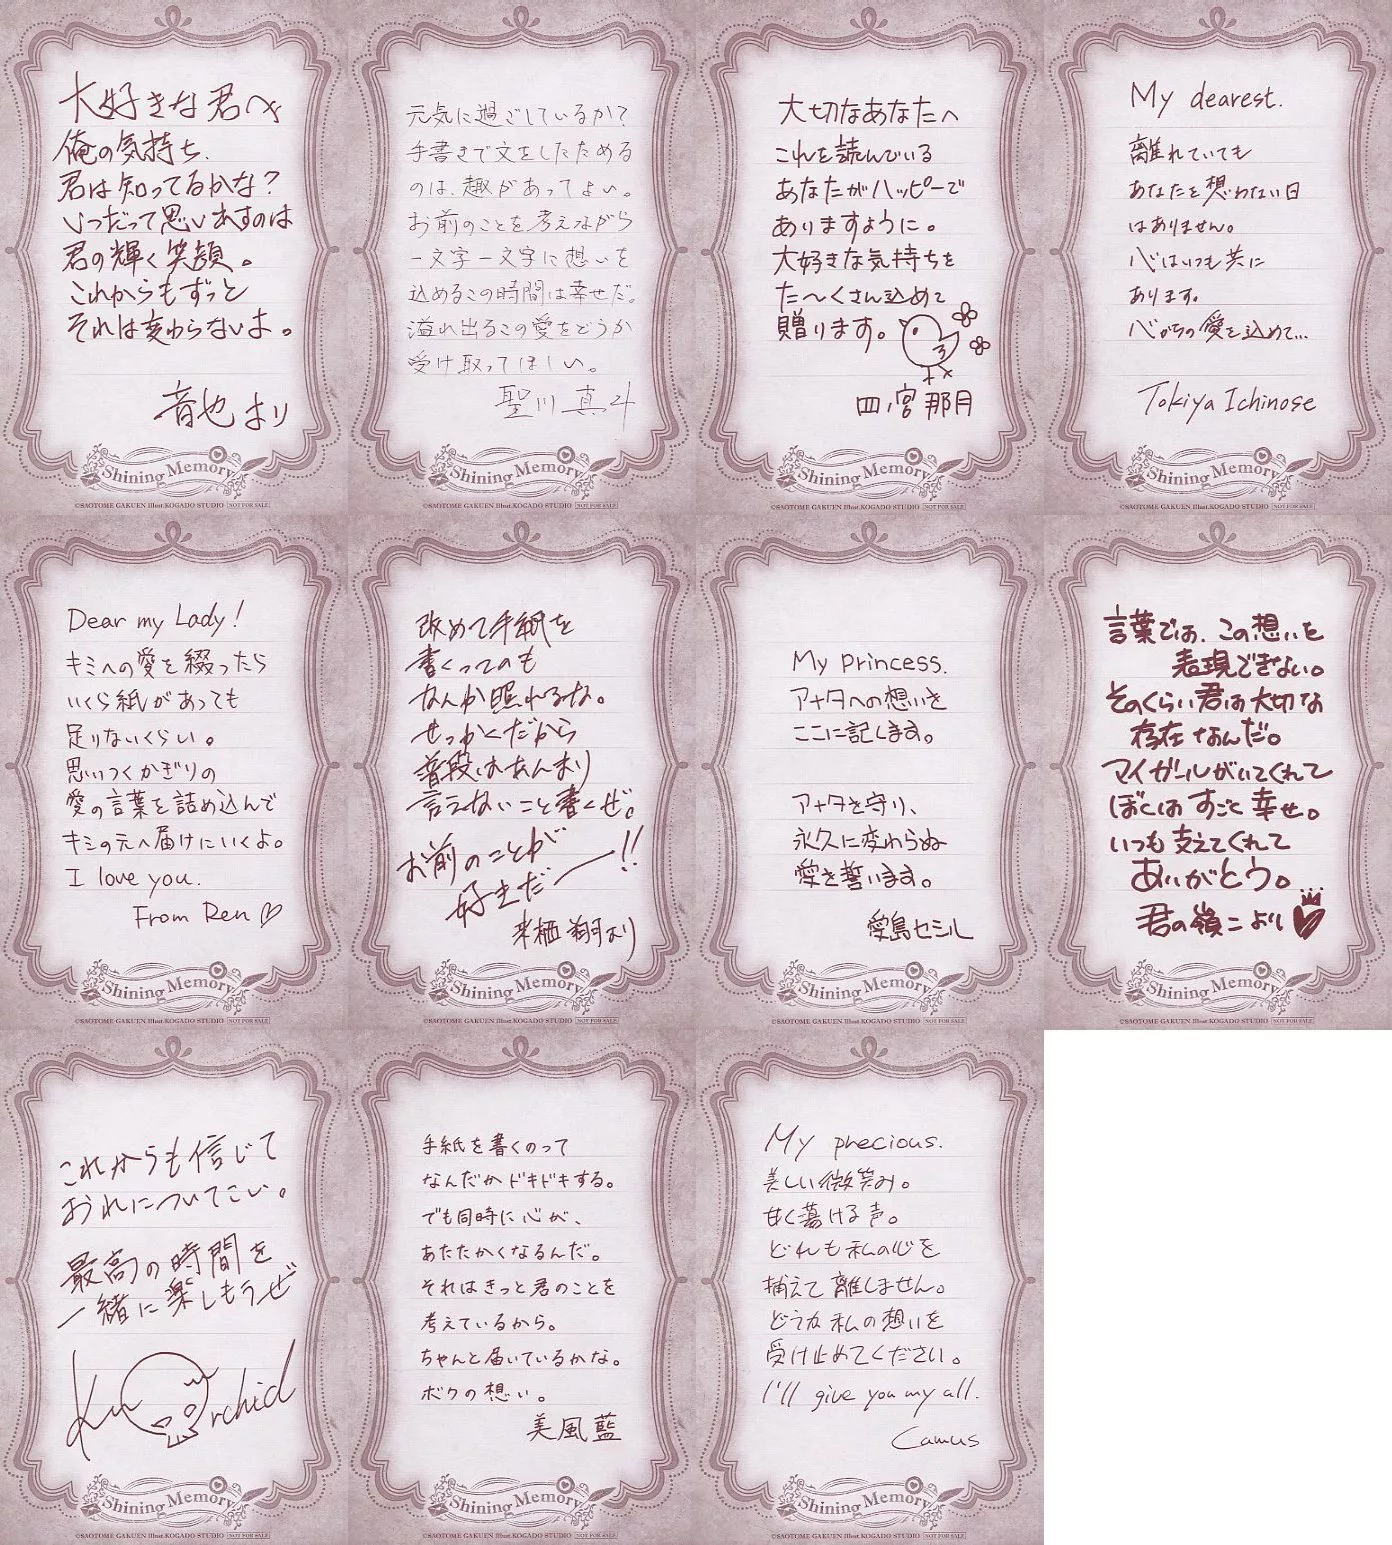 大好きな君へ
俺の気持ち、
君は知ってるかな?
いつだって思い出すのは
君の輝く笑顔。
これからもずっと
それは変わらないよ。
音也より
Shining Memory
©SAOTOME GAKUEN Illust.KOGADO STUDIO NOT FOR SALE
元気に過ごしているか?
手書きで文をしたためる
のは、趣があってよい。
お前のことを考えながら
一文字一文字に想いを
込めるこの時間は幸せだ。
溢れ出るこの愛をどうか
受け取ってほしい。
聖川真斗
Shining Memory
©SAOTOME GAKUEN Illust.KOGADO STUDIO NOT FOR SALE
大切なあなたへ
これを読んでいる
あなたがハッピーで
ありますように。
大好きな気持ちを
た〜くさん込めて
贈ります。
四ノ宮那月
Shining Memory
©SAOTOME GAKUEN Illust.KOGADO STUDIO NOT FOR SALE
My dearest.
離れていても
あなたを想わない日
はありません。
心はいつも共に
あります。
心からの愛を込めて…
Tokiya Ichinose
Shining Memory
©SAOTOME GAKUEN Illust.KOGADO STUDIO NOT FOR SALE
Dear my Lady!
キミへの愛を綴ったら
いくら紙があっても
足りないくらい。
思いつくかぎりの
愛の言葉を詰め込んで
キミの元へ届けにいくよ。
I love you.
From Ren♡
Shining Memory
©SAOTOME GAKUEN Illust.KOGADO STUDIO NOT FOR SALE
改めて手紙を
書くってのも
なんか照れるな。
せっかくだから
普段はあんまり
言えないこと書くぜ。
お前のことが
好きだー!!
来栖翔より
Shining Memory
©SAOTOME GAKUEN Illust.KOGADO STUDIO NOT FOR SALE
My princess.
アナタへの想いを
ここに記します。
アナタを守り、
永久に変わらぬ
愛を誓います。
愛島セシル
Shining Memory
©SAOTOME GAKUEN Illust.KOGADO STUDIO NOT FOR SALE
言葉では、この想いを
表現できない。
そのくらい君は大切な
存在なんだ。
マイガールがいてくれて
ぼくはすごく幸せ。
いつも支えてくれて
ありがとう。
君の嶺二より♥
Shining Memory
©SAOTOME GAKUEN Illust.KOGADO STUDIO NOT FOR SALE
これからも信じて
おれについてこい。
最高の時間を
一緒に楽しもうぜ
Shining Memory
©SAOTOME GAKUEN Illust.KOGADO STUDIO NOT FOR SALE
手紙を書くのって
なんだかドキドキする。
でも同時に心が、
あたたかくなるんだ。
それはきっと君のことを
考えているから。
ちゃんと届いているかな。
ボクの想い。
美風藍
Shining Memory
©SAOTOME GAKUEN Illust.KOGADO STUDIO NOT FOR SALE
My precious.
美しい微笑み。
甘く蕩ける声。
どれも私の心を
捕えて離しません。
どうか私の想いを
受け止めてください。
I'll give you my all.
Camus
Shining Memory
©SAOTOME GAKUEN Illust.KOGADO STUDIO NOT FOR SALE